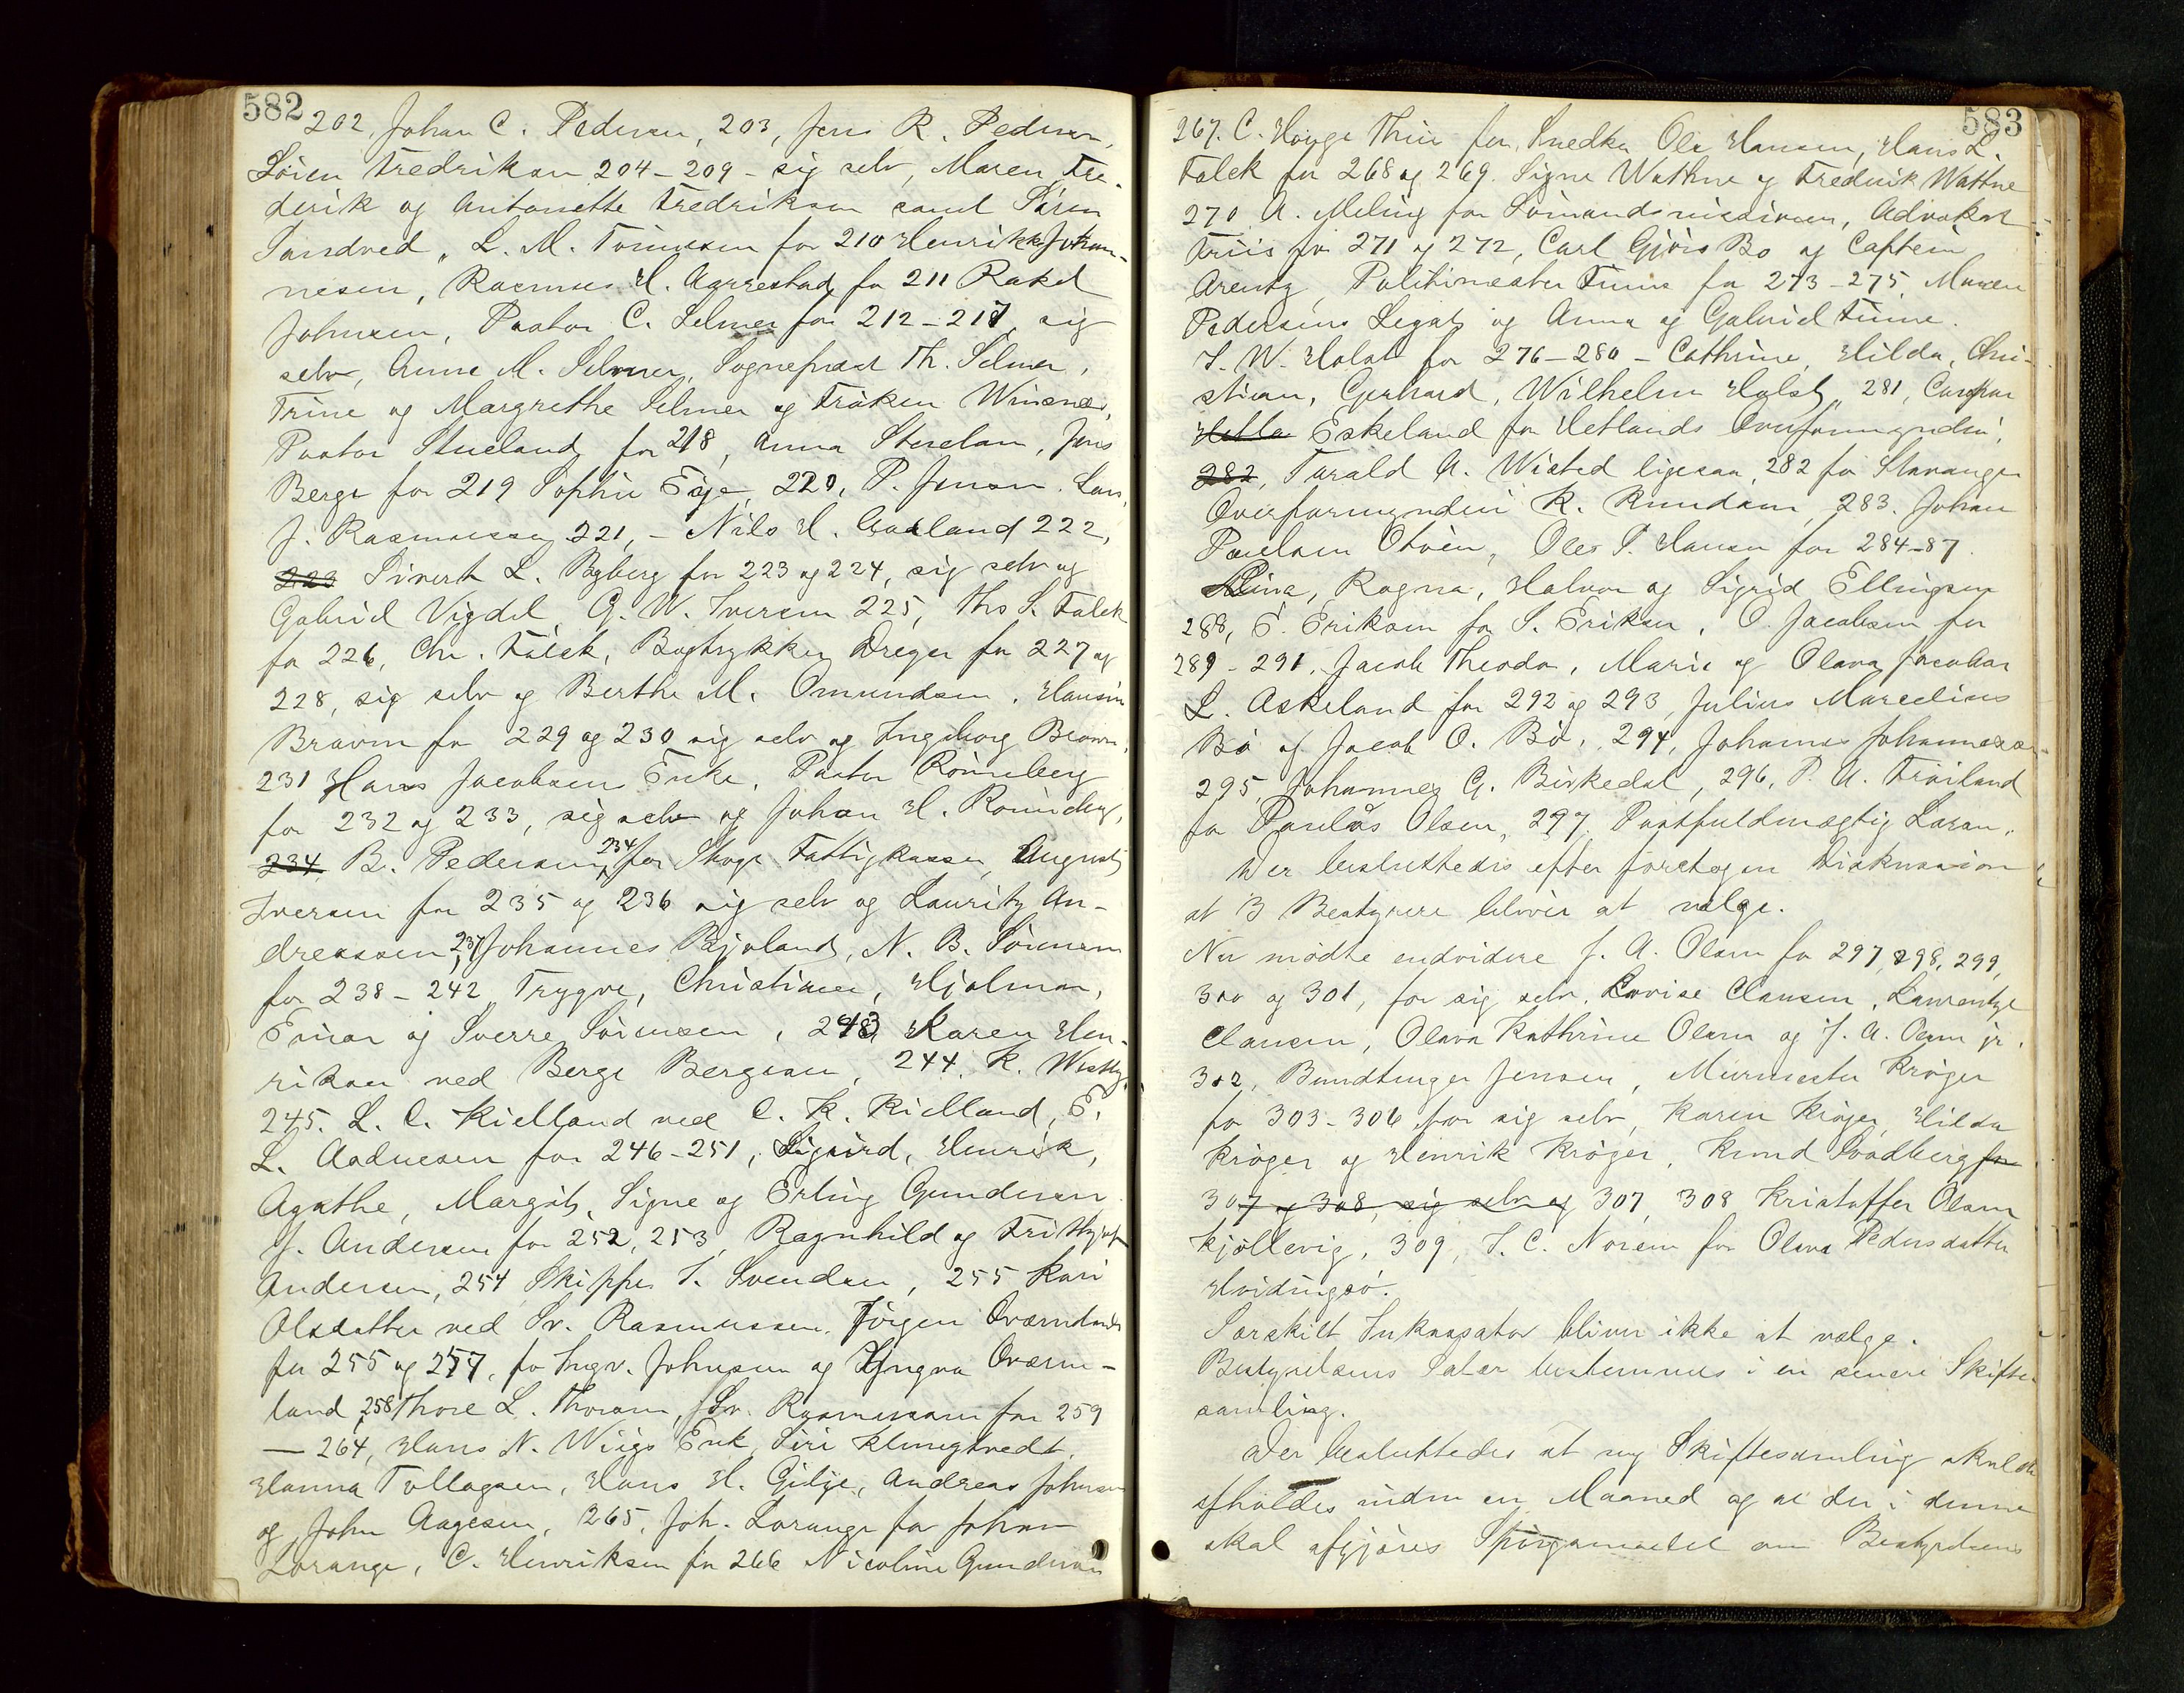 582
202, Johan C. Pedersen, 203, Jens R. Pedersen,
Sören Fredriksen 204-209 - sig selv, Maren, Fre-
derik og Antonette Fredriksen samt Sören
Sandved, L. M. Tönnesen for 210 Henrikke Johan-
nesen, Rasmus H. Aarrestad for 211 Rakel
Johnsen, Pastor C. Selmer for 212-217, sig
selv, Anne M. Selmer, Sogneprest Th. Selmer,
Trine og Margrethe Selmer og Fröken Winsnes,
Pastor Stueland for 218, Anna Stueland, Jens
Berge for 219 Sophie Eye, 220, P. Jensen. Lars
J. Rasmussen 221, - Nils H. Aadland 222,
223 Sivert L. Byberg for 223 og 224, sig selv og
Gabriel Vigdel, G. W. Iversen 225, Ths S. Falck
for 226, Chr. Falck, Bogtrykker Dreyer for 227 og
228, sig selv og Berthe M. Omundsen. Hansine
Brawn for 229 og 230 sig selv og Ingeborg Brawn,
231 Hans Jacobsens Enke, Pastor Rönneberg
for 232 og 233, sig selv og Johan H. Rönneberg,
234, B. Pedersen, 234 for Skoge Fattigkasse, August
Iversen for 235 og 236 sig selv og Lauritz An-
dreassen, 237 Johannes Bjoland, N. B. Sörensen
for 238-242 Trygve, Christiane, Hjalmar,
Einar og Sverre Sörensen, 243 Karen Hen-
riksen ved Berge Bergesen, 244, K. Westly,
245. L. C. Kielland ved C. K. Kielland, E.
L. Aadnesen for 246-251, Sigurd, Henrik,
Agathe, Margit, Signe og Erling Gundersen
J. Andersen for 252, 253, Ragnhild og Frithjof
Andersen, 254 Skipper T. Svendsen, 255 Kari
Olsdatter ved Sv. Rasmussen. Jörgen Oværndsen
for 255 og 257, for Ingv. Johnsen og Yngva Oværn-
land, 258 Thore L. Thorsen, Sv. Rasmussen for 259
- 264, Hans N. Wiigs Enk, Siri Klungtvedt,
Hanna Tollagsen, Hans H. Gilje, Andreas Johnsen
og John Aagesen, 265, Joh. Lorange for Johan
Lorange, C. Henriksen for 266 Nicoline Gundersen
583
267. C. Houge Thiis for Snedker Ole Hansen, Hans L.
Falck for 268 og 269. Signe Wathne og Fredrik Wathne
270 A. Meling for Sömandsmissionen, Advokat
Friis for 271 og 272, Carl Gjörs Bo og Captein
Arentz, Politimester Finne for 273-275, Maren
Pedersens Legat og Anna og Gabriel Finne.
S. W. Holst for 276-280 - Cathrine, Hilda, Chri-
stian, Gerhard, Wilhelm Holst, 281, Caspar
Eskeland for Hetlands Overformynderi,
282, Tarald A. Wisted ligesaa, 282 for Stavanger
Overformynderi K. Knudsen, 283. Johan
Paulsen Obrien, Oles T. Hansen for 284-87
Lina, Ragna, Halvor og Sigrid Ellingsen
288, E. Eriksen for S. Eriksen, O. Jacobsen for
289-291, Jacob Theodor, Marie og Olava Jacobsen
L. Askeland for 292 og 293, Julius Marcelius
Bö og Jacob O. Bö, 294, Johannes Johannesen
295, Johannes G. Birkedal, 296, P. A. Fröiland
for Paulus Olsen, 297. Postfuldmægtig Larsen.
Der besluttedes efter foretagen Diskussion
at 3 Bestyrere bliver at vælge.
Nu mödte endvidere J. A. Olsen for 297, 298, 299,
300 og 301, for sig selv, Lovise Clausen, Laurentze
Clausen, Olava Kathrine Olsen og J. A. Olsen jr.
302, Bundtmager Jensen, Murmester Kröger
for 303-306 for sig selv, Karen Kröger, Hilda
Kröger og Henrik Kröger, Knud Svadberg for
307 og 308, sig selv og 307, 308 Kristoffer Olsen
Kjöllevig, 309, T. C. Norem for Olava Pedersdatter
Hvidingsö.
Særskilt Inkassator bliver ikke at vælge.
Bestyrelsens Salær bestemmes i en senere Skifte-
samling.
Der besluttedes at ny Skiftesamling skulde
afholdes inden en Maaned og at der i denne
skal afgjöres Spörgsmaalet om Bestyrelsens